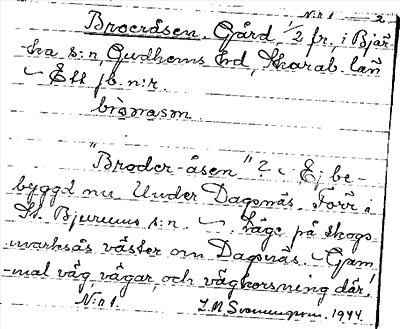 N:r 1. 2
Broeråsen. Gård, 1/2 fr. i Bjär-
ka s:n, Gudhems hd, Skarab. län
~ Ett jb. n:r.
"Broder-åsen"? ~ Ej be-
byggd nu. Under Dagsnäs. Förr,
St. Bjurums s:n. ~ Läge på skogs-
marksås väster om Dagsnäs. ~ Gam-
mal väg, vägar, och vägkorsning där!
N:r 1. 1944.